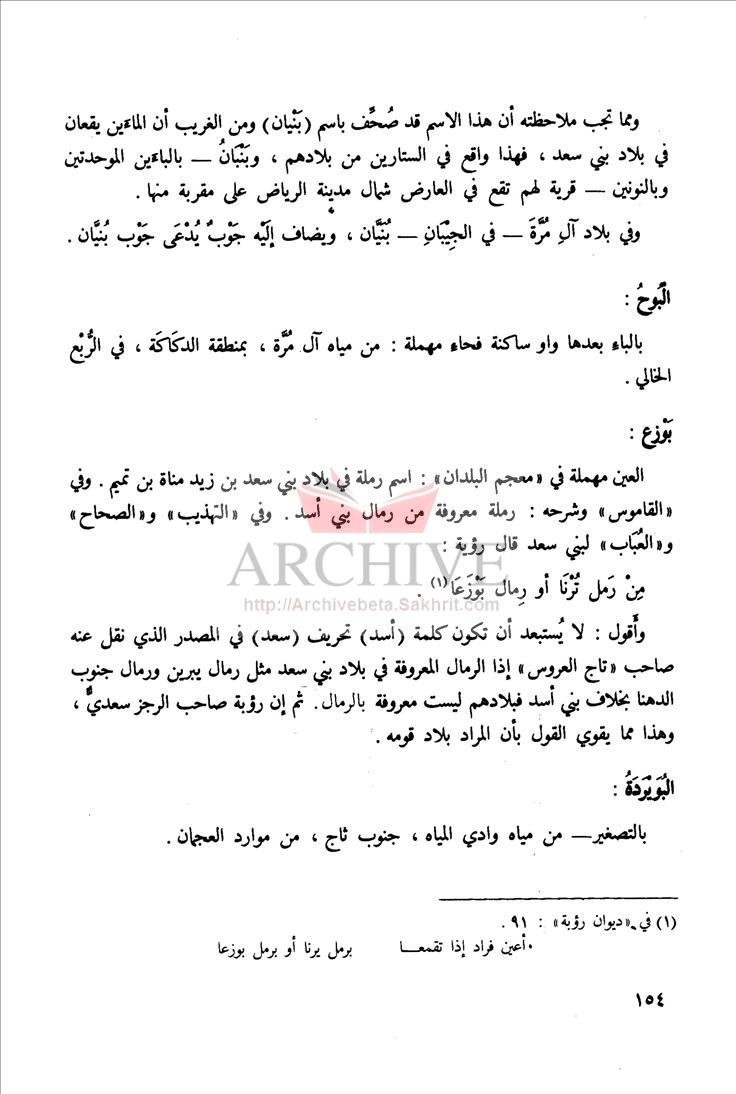 ومما تجب ملاحظته أن هذا الاسم قد صُحِّف باسم (بَنْيان) ومن الغريب أن الماءين يقعان
في بلاد بني سعد ، فهذا واقع في الستارين من بلادهم ، وبَنْبَانُ — بالباءين الموحدتين
وبالنونين — قرية لهم تقع في العارض شمال مدينة الرياض على مقربة منها .
وفي بلاد آلِ مُرَّةَ — في الجِيْبَانِ — بُنَيَّان ، ويضاف إلَيْه جَوْبٌ يُدْعَى جَوْب بُنَيَّان .
الْبُوحُ :
بالباءِ بعدها واو ساكنة فحاء مهملة : من مياه آل مُرَّة ، بمنطقة الدكَاكَة ، في الرُّبْع
الخالي .
بَوْزع :
العين مهملة في «معجم البلدان» : اسم رملة في بلاد بني سعد بن زيد مناة بن تميم . وفي
«القاموس» وشرحه : رملة معروفة من رمال بني أسد . وفي «التهذيب» و«الصحاح»
و«العُبَاب» لبني سعد قال رؤبة :
ARCHIVE
http://Archivebeta.Sakhrit.com
مِنْ رَمل تُرْنَا أو رِمال بَوْزَعَا(١) .
وأقول : لا يُستبعد أن تكون كلمة (أسد) تحريف (سعد) في المصدر الذي نقل عنه
صاحب «تاج العروس» إذا الرمال المعروفة في بلاد بني سعد مثل رمال يبرين ورمال جنوب
الدهنا بخلاف بني أسد فبلادهم ليست معروفة بالرمال. ثم إن رؤبة صاحب الرجز سعديٌّ ،
وهذا مما يقوي القول بأن المراد بلاد قومه .
الْبُوَيْرِدَةُ :
بالتصغير— من مياه وادي المياه ، جنوب ثاج ، من موارد العجمان .
(١) في «ديوان رؤبة» : ٩١ .
أعين فراد إذا تقمعـــا برمل يرنا أو برمل بوزعا
١٥٤